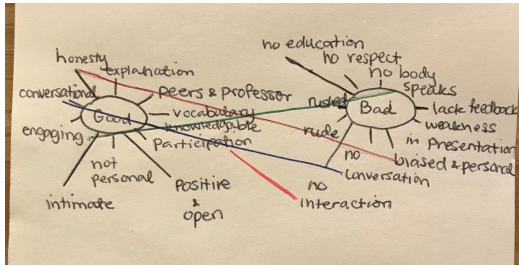 honesty
explanation
conversational
peers & professor
Good
vocabulary
knowledgable
engaging
participation
not
personal
intimate
positive
&
open
no education
no respect
no body
speaks
rushed
Bad
lack feedback
rude
weakness
in presentation
biased & personal
no
conversation
no
interaction